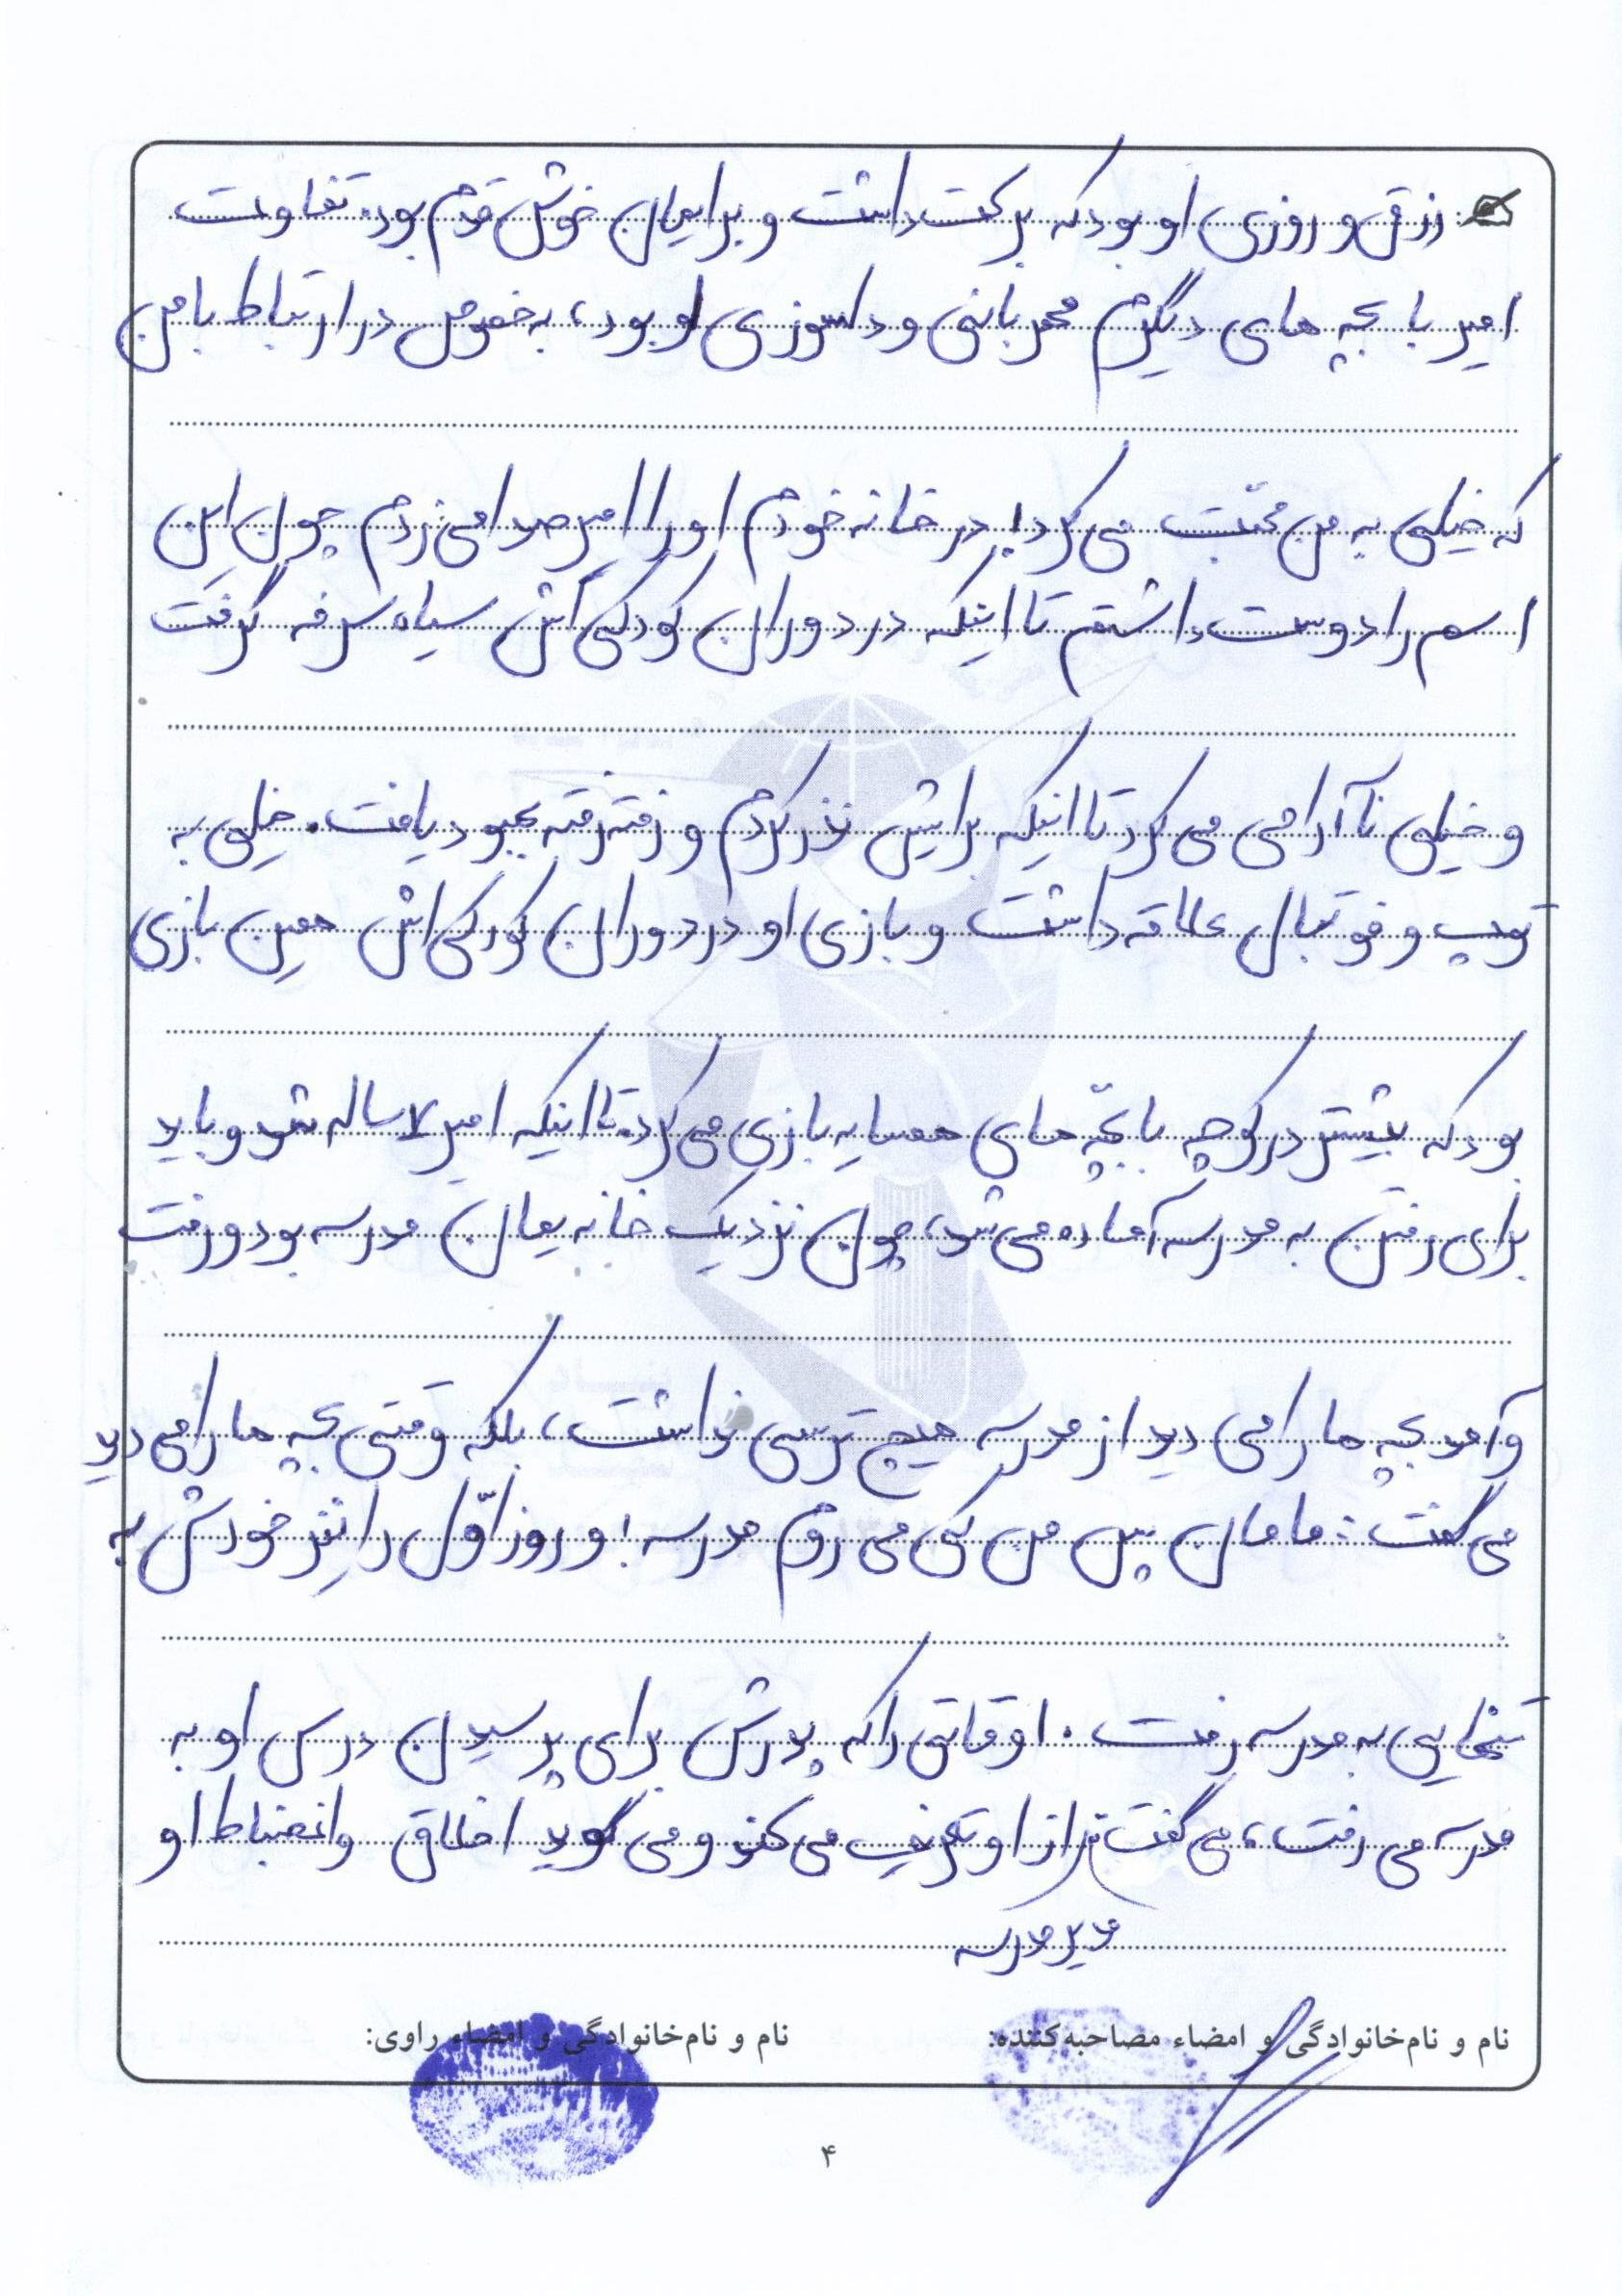 رزق و روزی او بود که برکت داشت و برایمان خوش قدم بود. تفاوت
امیر با بچه های دیگرم مهربانی و دلسوزی او بود، به خصوص در ارتباط با من
که خیلی به من محبّت می کرد! در خانه خودم او را امیر صدا می زدم چون این
اسم را دوست داشتم تا اینکه در دوران کودکی اش سیاه سرفه گرفت
و خیلی ناآرامی می کرد تا اینکه برایش نذر کردم و رفته رفته بهبود یافت. خیلی به
توپ و فوتبال علاقه داشت و بازی او در دوران کودکی اش همین بازی
بود که بیشتر در کوچه با بچّه های همسایه بازی می کرد. تا اینکه امیر ۷ ساله شد و باید
برای رفتن به مدرسه آماده می شد، چون نزدیک خانه یمان مدرسه بود و رفت
و آمد بچه ها را می دید از مدرسه هیچ ترسی نداشت، بلکه وقتی بچه ها را می دید
می گفت: مامان پس من کی می روم مدرسه! و روز اوّل را نیز خودش به
تنهایی به مدرسه رفت. اوقاتی را که پدرش برای پرسیدن درس او به
مدرسه می رفت، می گفت نیز از او تعریف می کند و می گوید اخلاق و انضباط او
مدیر مدرسه
نام و نام‌خانوادگی و امضاء مصاحبه‌کننده:
نام و نام‌خانوادگی و امضاء راوی:
۴